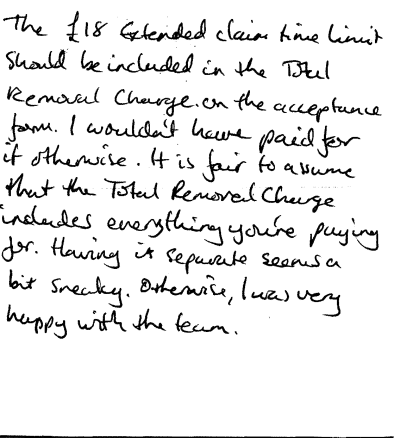 The £18 Extended claim time limit
should be included in the Total
Removal Charge on the acceptance
form. I wouldn't have paid for
it otherwise. It is fair to assume
that the Total Removal Charge
includes everything you're paying
for. Having it separate seems a
bit sneaky. Otherwise, I was very
happy with the team.